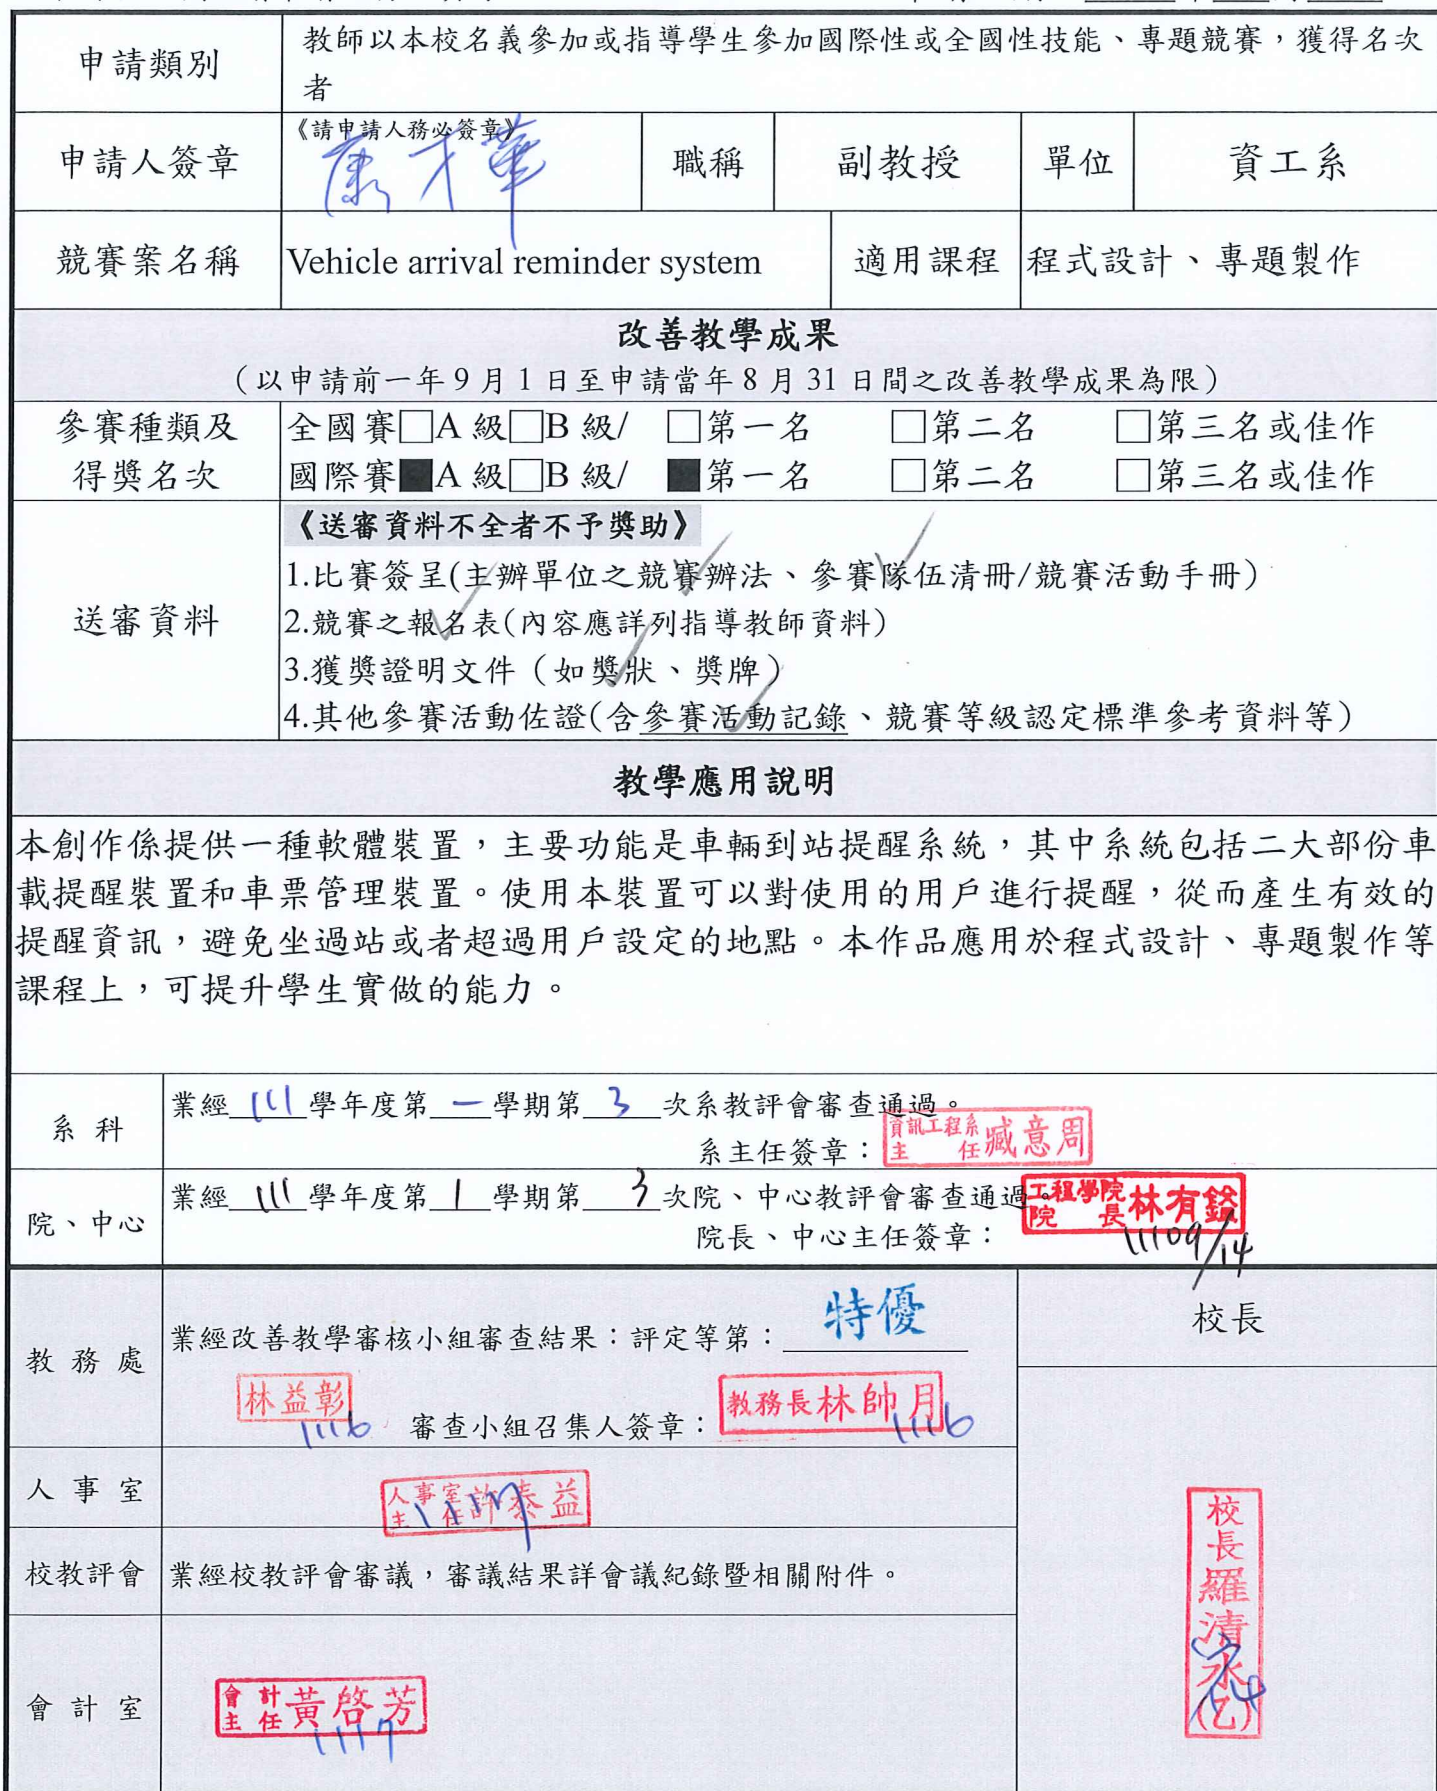 申請類別
教師以本校名義參加或指導學生參加國際性或全國性技能、專題競賽，獲得名次
者
申請人簽章
《請申請人務必簽章》
康才華
職稱
副教授
單位
資工系
競賽案名稱
Vehicle arrival reminder system
適用課程
程式設計、專題製作
改善教學成果
（以申請前一年 9 月 1 日至申請當年 8 月 31 日間之改善教學成果為限）
參賽種類及
得獎名次
全國賽□A 級□B 級/ □第一名 □第二名 □第三名或佳作
國際賽■A 級□B 級/ ■第一名 □第二名 □第三名或佳作
送審資料
《送審資料不全者不予獎助》
1.比賽簽呈(主辦單位之競賽辦法、參賽隊伍清冊/競賽活動手冊)
2.競賽之報名表(內容應詳列指導教師資料)
3.獲獎證明文件（如獎狀、獎牌）
4.其他參賽活動佐證(含參賽活動記錄、競賽等級認定標準參考資料等)
教學應用說明
本創作係提供一種軟體裝置，主要功能是車輛到站提醒系統，其中系統包括二大部份車
載提醒裝置和車票管理裝置。使用本裝置可以對使用的用戶進行提醒，從而產生有效的
提醒資訊，避免坐過站或者超過用戶設定的地點。本作品應用於程式設計、專題製作等
課程上，可提升學生實做的能力。
系科
業經 111 學年度第 一 學期第 3 次系教評會審查通過。
系主任簽章：
資訊工程系
主任 臧意周
院、中心
業經 111 學年度第 1 學期第 3 次院、中心教評會審查通過。
院長、中心主任簽章：
工程學院
院長 林有鎰
11109/14
教務處
業經改善教學審核小組審查結果：評定等第： 特優
林益彰
1116
審查小組召集人簽章：
教務長林帥月
1116
校長
人事室
人事室
主任 許泰益
1117
校教評會
業經校教評會審議，審議結果詳會議紀錄暨相關附件。
會計室
會計
主任 黃啓芳
1117
校長羅清水(乙)